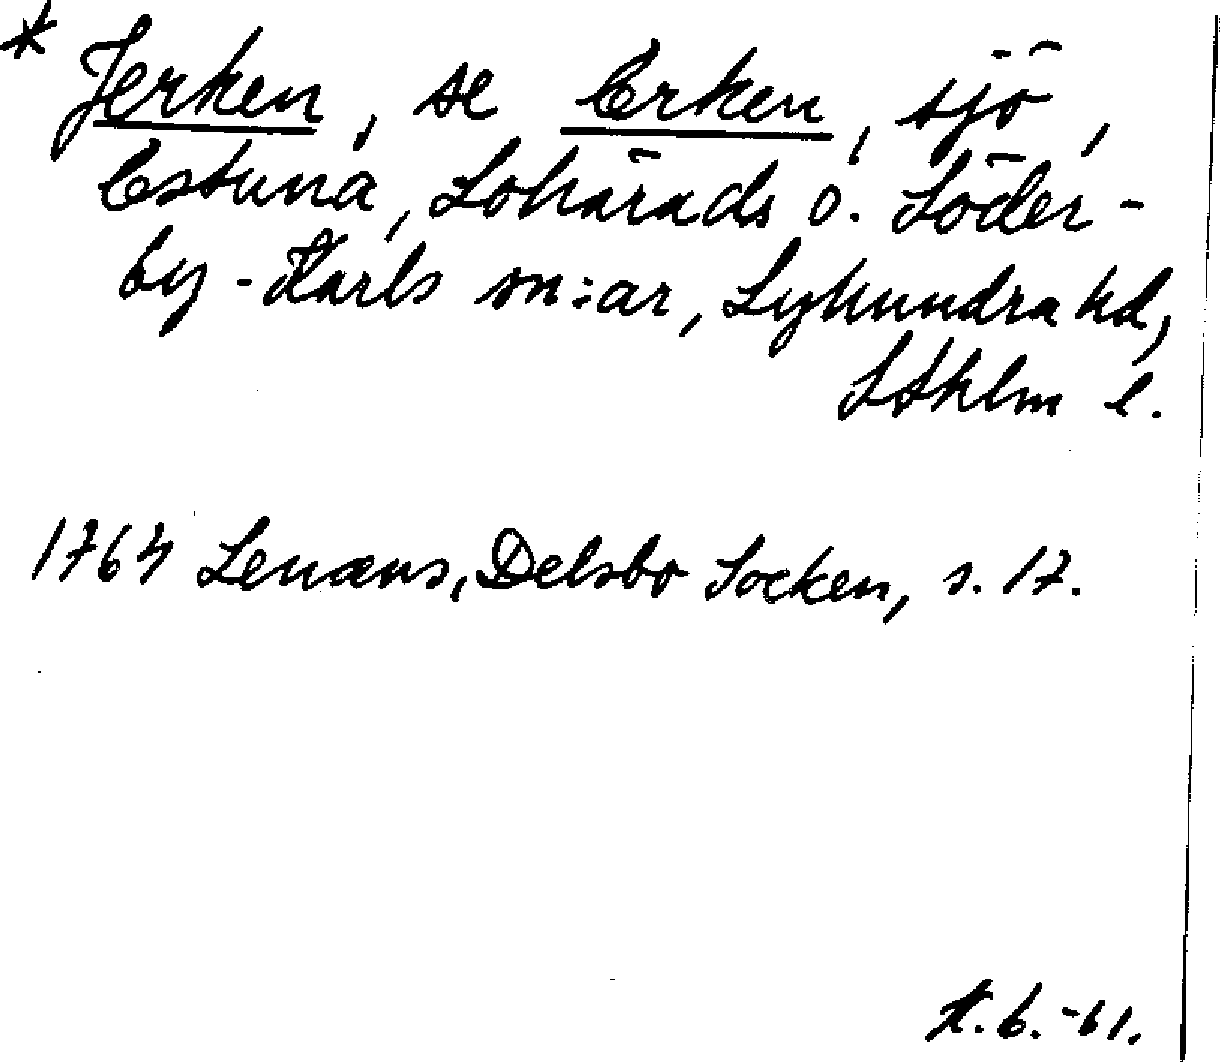 * Jerken, se Erken, sjö,
Estuna, Lohärads o. Söder-
by-Karls sn:ar, Lyhundra hd,
Sthlm l.
1764 Lenæus, Delsbo Socken, s. 17.
H.B.-61.